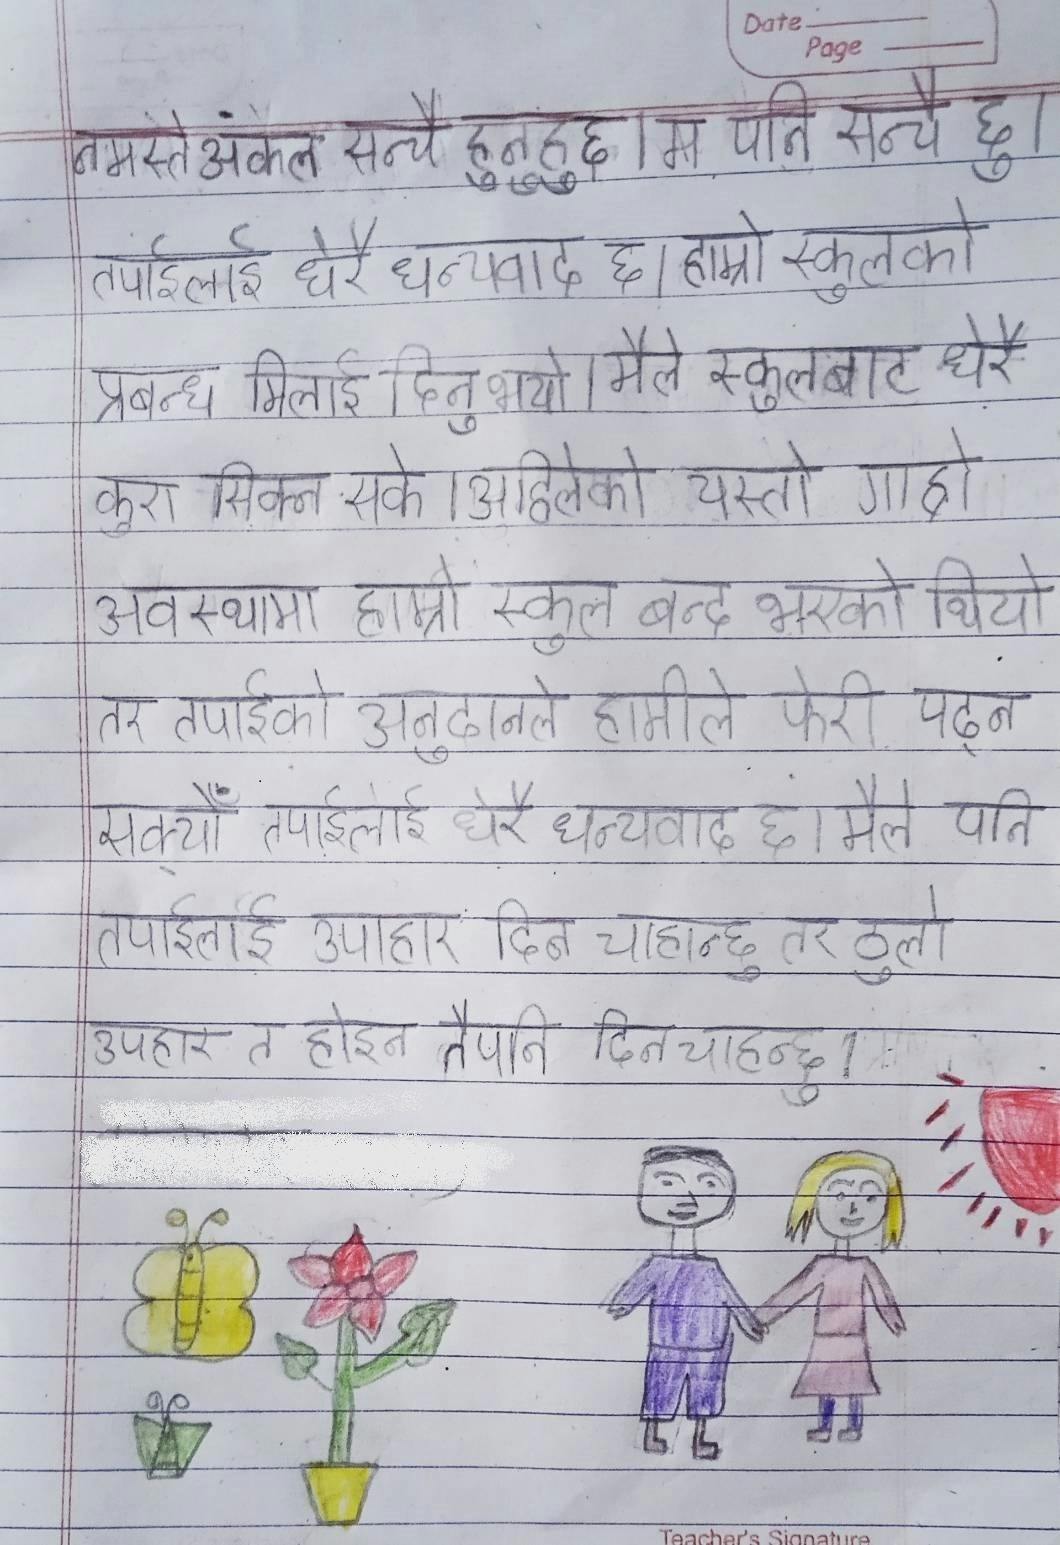 Date
Page
नमस्ते अंकल सन्चै हुनुहुन्छ । म पनि सन्चै छु ।
तपाईलाई धेरै धन्यवाद छ । हाम्रो स्कुलको
प्रबन्ध मिलाई दिनु भयो । मैले स्कुलबाट धेरै
कुरा सिक्न सके । अहिलेको यस्तो गाह्रो
अवस्थामा हाम्रो स्कुल बन्द भएको थियो
तर तपाईको अनुदानले हामीले फेरी पढ्न
सक्यौँ तपाईलाई धेरै धन्यवाद छ । मैले पनि
तपाईलाई उपाहार दिन चाहान्छु तर ठुलो
उपहार त होइन तैपनि दिन चाहन्छु ।
Teacher's Signature